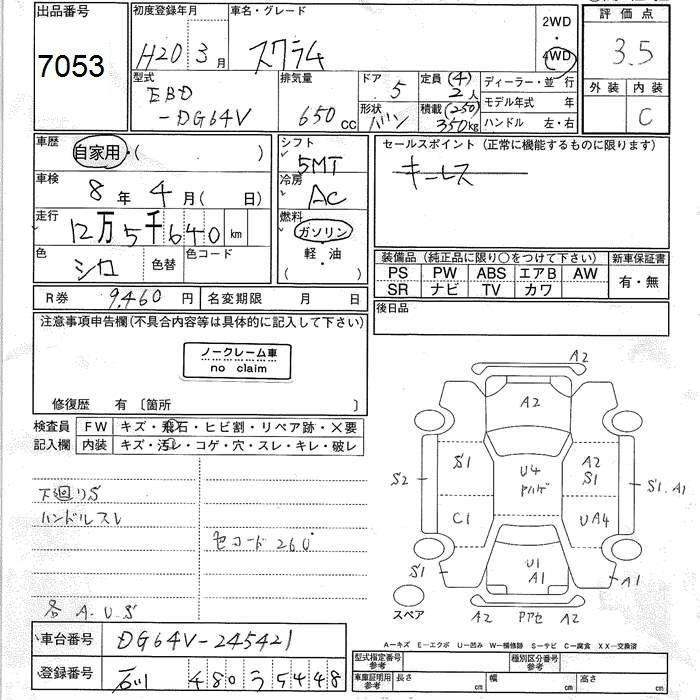 出品番号
7053
初度登録年月
H20 3月
車名・グレード
スクラム
2WD
・
4WD
評価点
3.5
外装 内装
C
型式
EBD
-DG64V
排気量
650cc
ドア
5
形状
バン
定員 (4)
2人
積載 (250)
350kg
ディーラー・並行
モデル年式 年
ハンドル 左・右
車歴
自家用・( )
車検
8年4月( 日)
走行
12万5千640km
色
シロ
色替
色コード
シフト
5MT
冷房
AC
燃料
ガソリン
軽・油
( )
セールスポイント(正常に機能するものに限ります)
キーレス
装備品(純正品に限り○をつけて下さい)
新車保証書
PS PW ABS エアB AW
SR ナビ TV カワ
有・無
R券 9,460円
名変期限 月 日
後日品
注意事項申告欄(不具合内容等は具体的に記入して下さい)
ノークレーム車
no claim
修復歴 有 〔箇所 〕
検査員
記入欄
FW キズ・飛石・ヒビ割・リペア跡・×要
内装 キズ・汚レ・コゲ・穴・スレ・キレ・破レ
下廻りS
ハンドルスレ
色コード 26U
各 A・U・S
A2
A2
S1
U4
ハゲ
A2
S1
S2
S1.A1
C1
UA4
S1
U1
A1
A1
スペア
A2
A2
A-キズ E-エクボ U-凹み W-補修跡 S-サビ C-腐食 XX-交換済
車台番号 DG64V-245421
登録番号 石川 480 う 5448
型式指定番号
参考
種別区分番号
参考
車庫証明用
参考
長さ cm
幅 cm
高さ cm